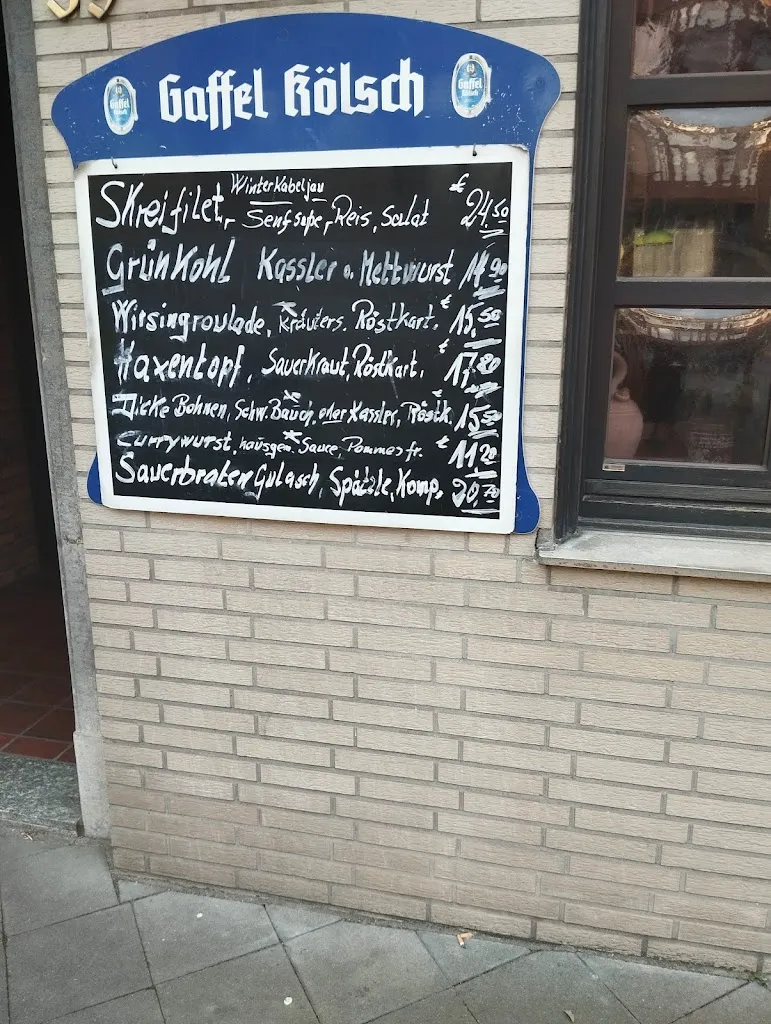 Gaffel Kölsch
Gaffel Kölsch
Gaffel Kölsch
Winterkabeljau
Skreifilet, Senfsoße, Reis, Salat € 24,50
Grünkohl Kassler o. Mettwurst
Wirsingroulade, Kräuters. Röstkart. € 15,50
Haxentopf, Sauerkraut, Röstkart. € 17,20
Dicke Bohnen, Schw. Bauch, oder Kassler, Röstk. € 15,50
Currywurst, hausgem. Sauce, Pommes fr. € 11,20
Sauerbraten Gulasch, Spätzle, Komp. 20,70